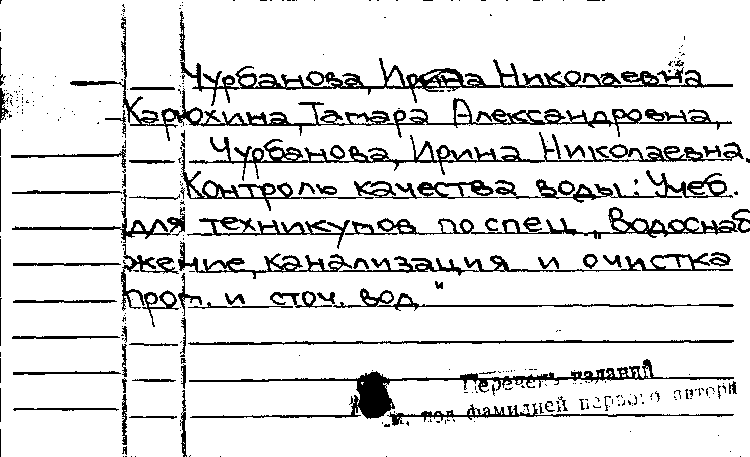 Чурбанова, Ирина Николаевна
Карюхина, Тамара Александровна,
Чурбанова, Ирина Николаевна.
Контроль качества воды: Учеб.
для техникумов по спец „Водоснаб
жение, канализация и очистка
пром. и сточ. вод"
Перечень изданий
см. под фамилией первого автора